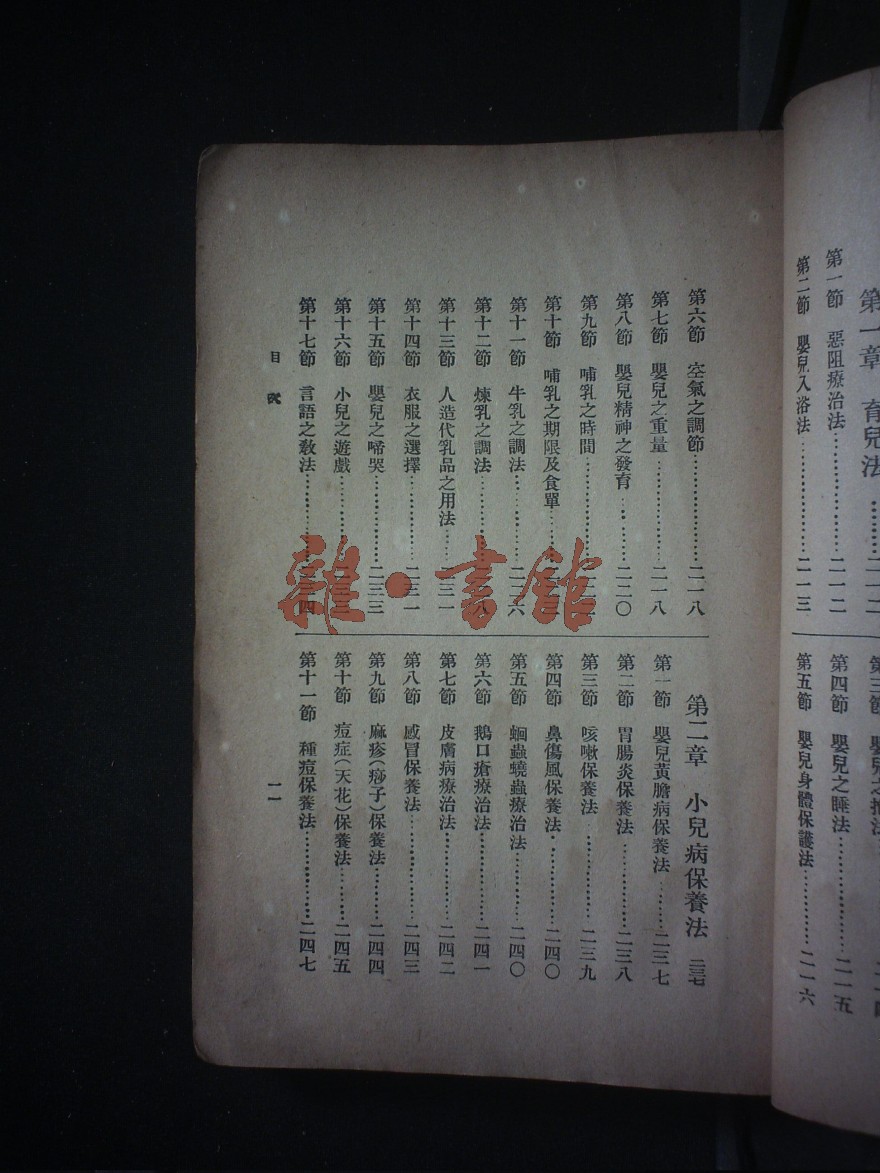 第一章 育兒法………二一二
第一節 惡阻療治法………二一二
第二節 嬰兒入浴法………二一三
第三節 嬰兒之抱法………
第四節 嬰兒之睡法………二一五
第五節 嬰兒身體保護法………二一六
第六節 空氣之調節………二一八
第七節 嬰兒之重量………二一八
第八節 嬰兒精神之發育………二二〇
第九節 哺乳之時間………
第十節 哺乳之期限及食單………
第十一節 牛乳之調法………二二六
第十二節 煉乳之調法………八
第十三節 人造代乳品之用法………三一
第十四節 衣服之選擇………二三一
第十五節 嬰兒之啼哭………二三三
第十六節 小兒之遊戲………
第十七節 言語之教法………四
第二章 小兒病保養法 二三七
第一節 嬰兒黃膽病保養法………二三七
第二節 胃腸炎保養法………二三八
第三節 咳嗽保養法………二三九
第四節 鼻傷風保養法………二四〇
第五節 蛔蟲蟯蟲療治法………二四〇
第六節 鵝口瘡療治法………二四一
第七節 皮膚病療治法………二四二
第八節 感冒保養法………二四三
第九節 麻疹(痧子)保養法………二四四
第十節 痘症(天花)保養法………二四五
第十一節 種痘保養法………二四七
目次
一一
雜·書館